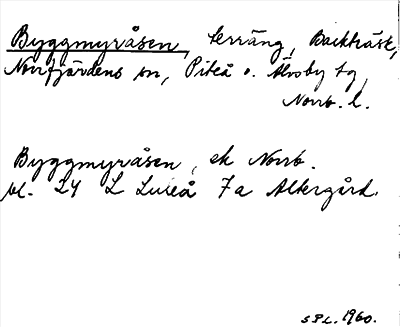 Byggmyråsen, terräng, Backträsk,
Norrfjärdens sn, Piteå o. Älvsby tg,
Norrb. l.
Byggmyråsen, ek Norrb.
bl. 24 L Luleå 7a Altergård.
SPL. 1960.